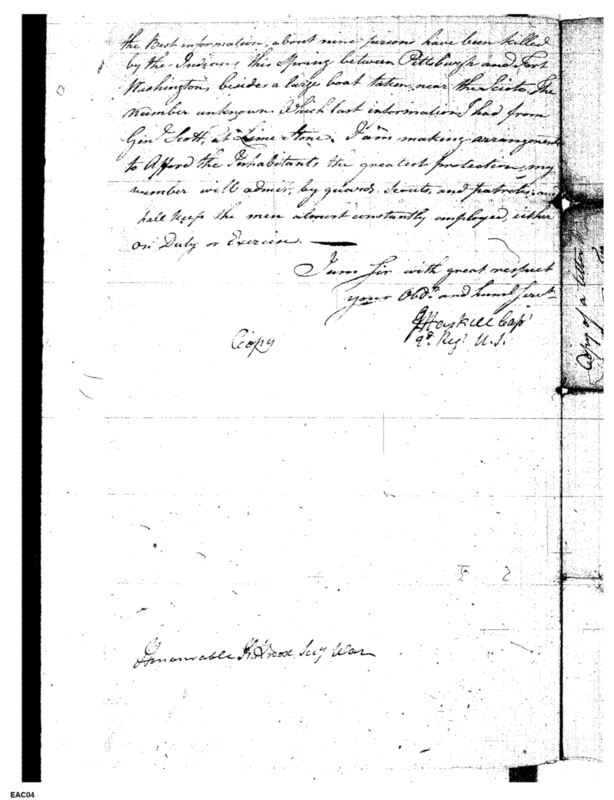 the Best information, about nine persons have been killed
by the Indians this Spring between Pittsburgh and Fort
Washington, beside a large boat taken near the Sciota, the
number unknown Which last information I had from
Genl Scott, at Lime Stone. I am making arrangements
to Afford the Inhabitants the greatest protection my
number will admit, by guards Scouts, and patrols, and
hall keep the men almost constantly employed, either
on Duty or Exercise.
I am Sir with great respect
your Obdt. and huml Servt
J Haskell Capt
2d. Regt U.S.
Copy
Honourable H Knox Secy War
Copy of a letter
EAC04